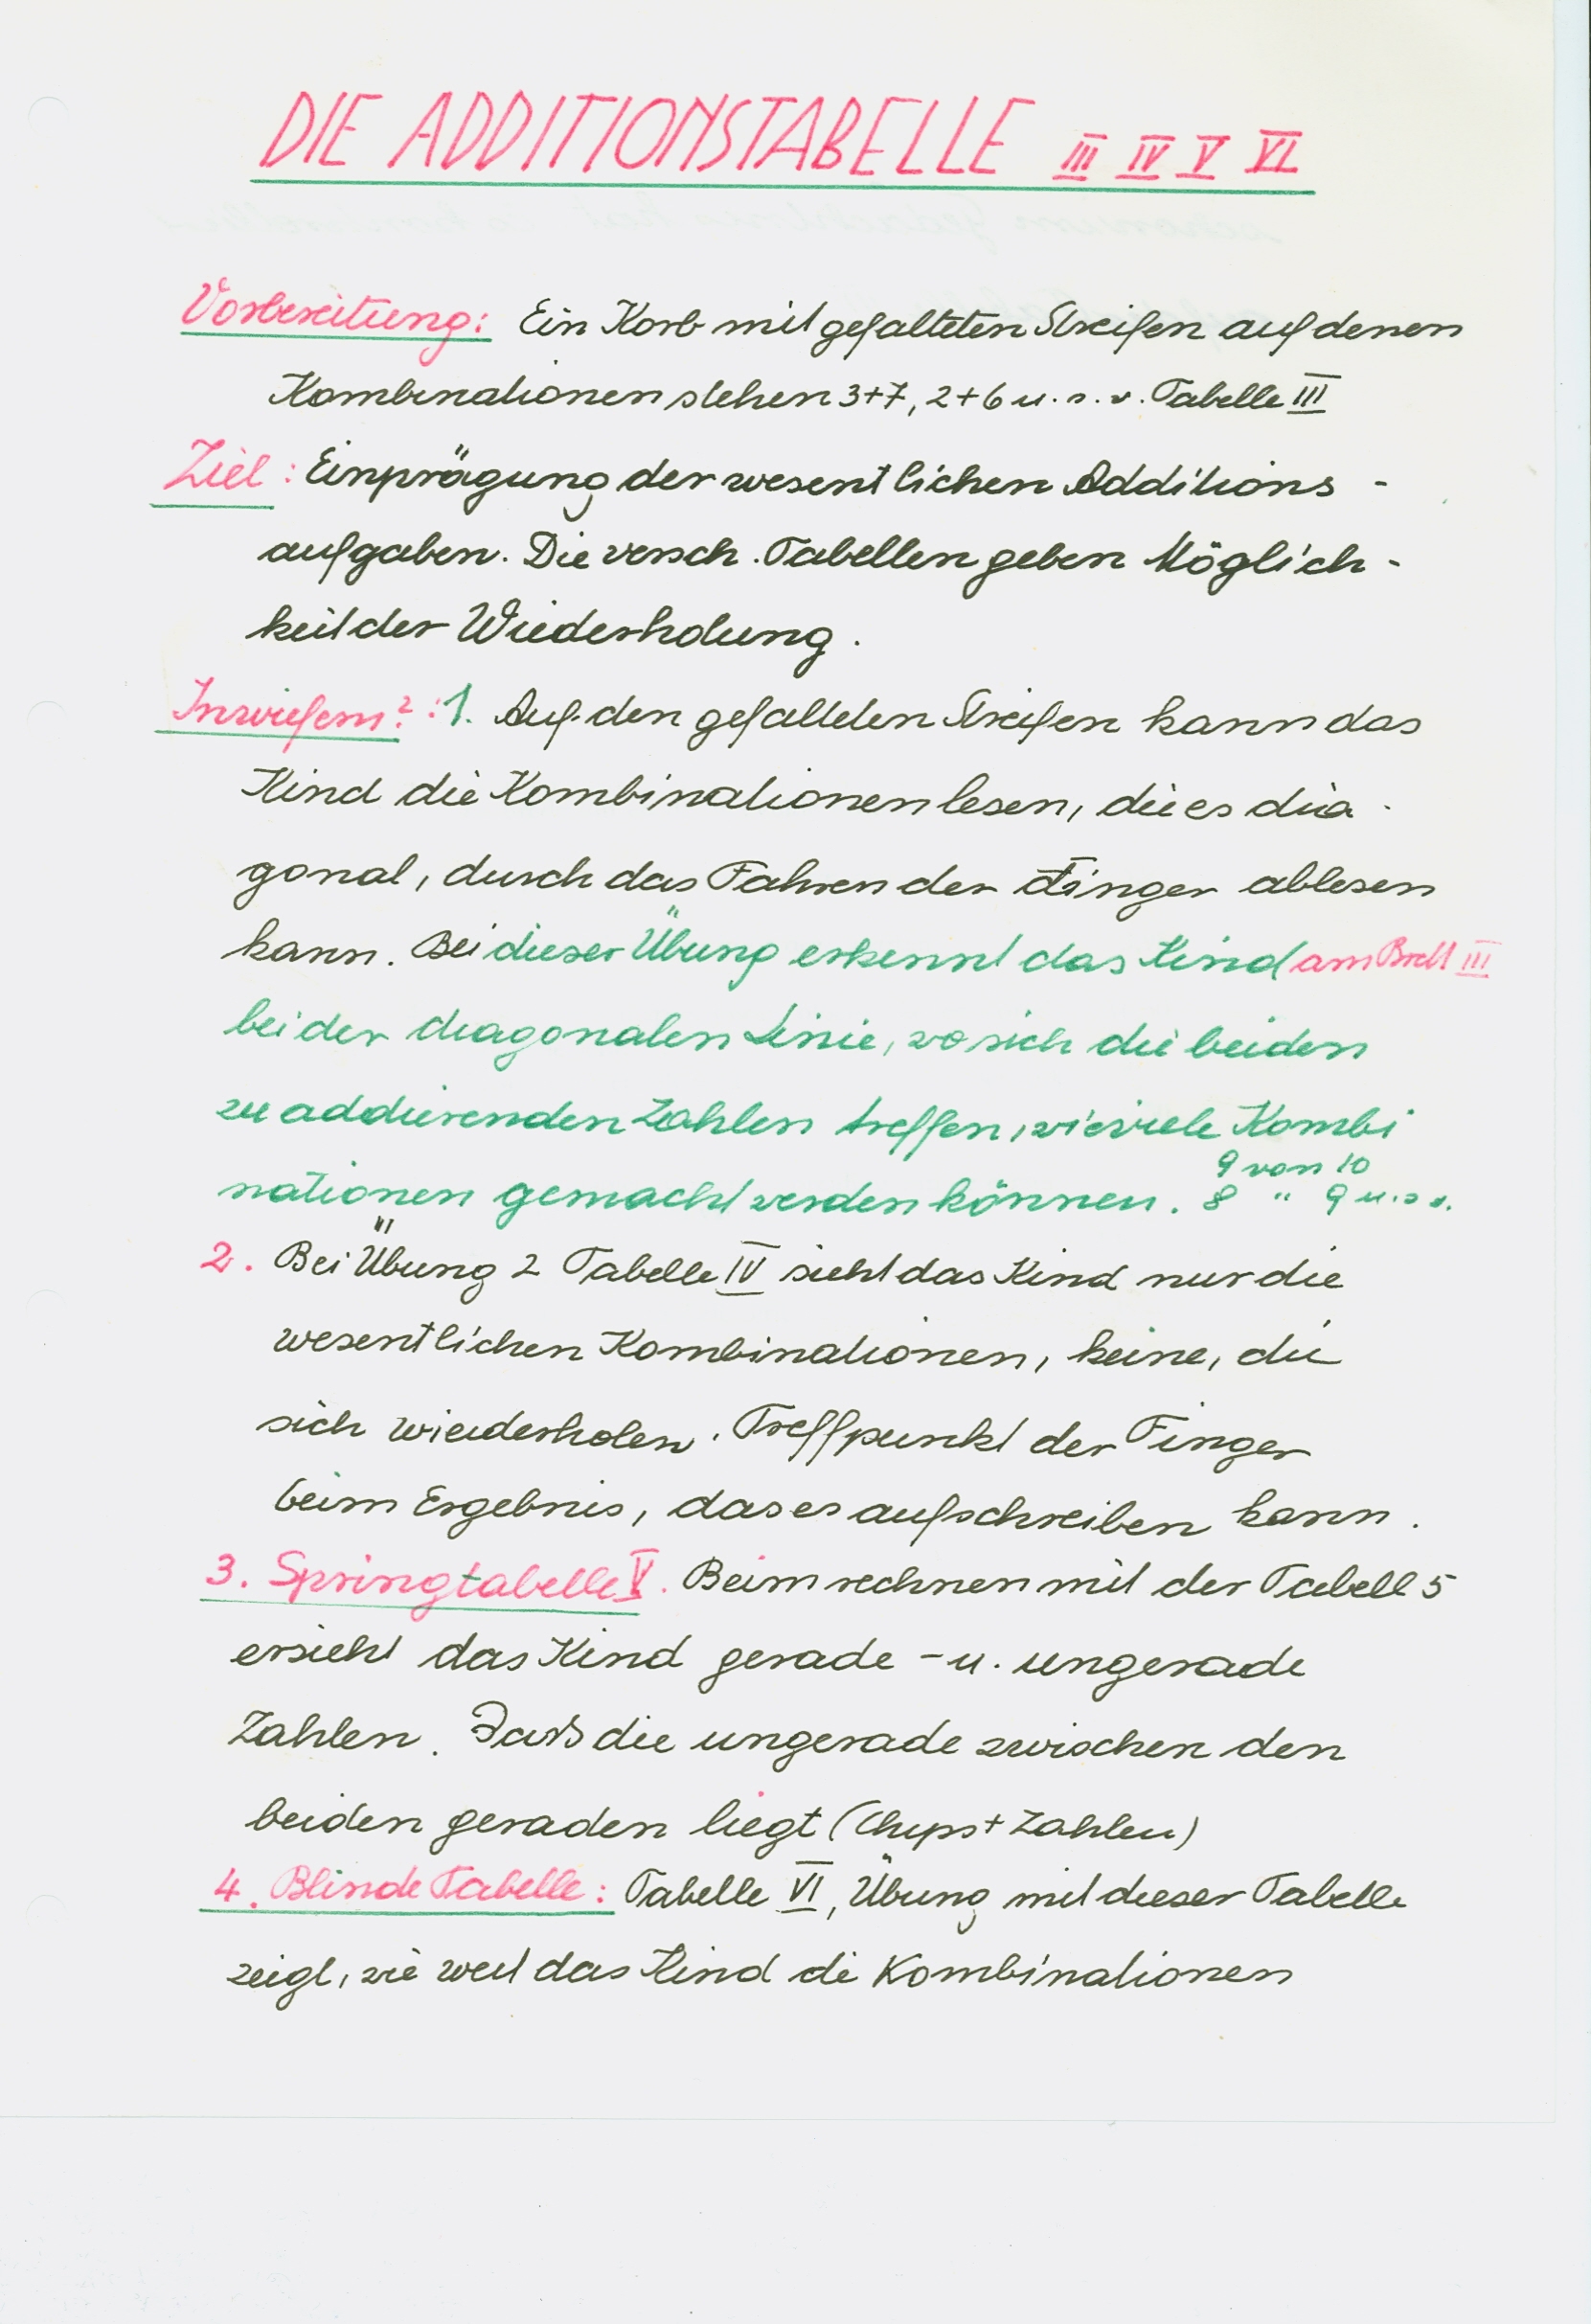 DIE ADDITIONSTABELLE III IV V VI
Vorbereitung: Ein Korb mit gefalteten Streifen auf denen
Kombinationen stehen 3+7, 2+6 u. s. w. Tabelle III
Ziel: Einprägung der wesentlichen Additions-
aufgaben. Die versch. Tabellen geben Möglich-
keit der Wiederholung.
Inwiefern?: 1. Auf den gefalteten Streifen kann das
Kind die Kombinationen lesen, die es dia-
gonal, durch das Fahren der Finger ablesen
kann. Bei dieser Übung erkennt das Kind am Brett III
bei der diagonalen Linie, wo sich die beiden
zu addierenden Zahlen treffen, wieviele Kombi
9 von 10
nationen gemacht werden können. 8 " 9 u. s. w.
2. Bei Übung 2 Tabelle IV sieht das Kind nur die
wesentlichen Kombinationen, keine, die
sich wiederholen. Treffpunkt der Finger
beim Ergebnis, das es aufschreiben kann.
3. Springtabelle V. Beim rechnen mit der Tabell 5
ersieht das Kind gerade - u. ungerade
Zahlen. Daß die ungerade zwischen den
beiden geraden liegt (Chips + Zahlen)
4. Blinde Tabelle: Tabelle VI, Übung mit dieser Tabelle
zeigt, wie weit das Kind di Kombinationen